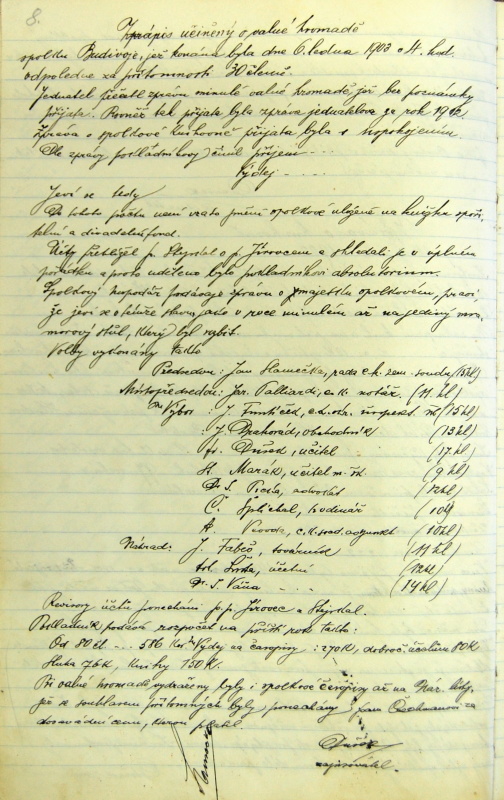 8.
Zápis učiněný o valné hromadě
spolku Budivoje, jež konána byla dne 6. ledna 1903 o 4. hod.
odpoledne za přítomnosti 30 členů.
Jednatel přečetl zprávu minulé valné hromadě, jež bez poznámky
přijata. Rovněž tak přijata byla zpráva jednatelova za rok 1902.
Zpráva o spolkové knihovně přijata byla s uspokojením
Dle zprávy pokladníkovy činil příjem - - -
Výdej - - - -
Jeví se tedy
Do tohoto počtu není vzato jmění spolkové uložené na knížku spoři-
telní a divadelní fond.
Účty přehlížel p. Stejskal a p. Jírovec a shledali je v úplném
pořádku a proto uděleno bylo pokladníkovi absolutorium.
Spolkový hospodář podávaje zprávu o majetku spolkovém, praví,
že jeví se v témže stavu, jako v roce minulém až na jediný mra-
morový stůl, který byl rozbit.
Volby vykonány takto
Předsedou: Jan Slamečka, rada c.k. zem. soudu (15 hl)
Místopředsedou: Jar. Palliardi, c.k. notář. (11. hl)
Výbor : J. c.k. škr. inspekt. (15 hl)
: J. Drahorád, obchodník (13 hl)
Fr. Dušek, učitel (17 hl)
H. Marák, učitel m. šk. (9 hl)
Dr. S. advokát (12 hl)
Č. Šplíchal, hodinář (10 hl)
A. c.k. soud. adjunkt (10 hl)
Náhrad: J. Fabeš, továrník (11 hl)
účetní
Dr. J. Váňa - - . (14 hl)
Revisory účtů ponecháni p.p. Jírovec a Stejskal.
Pokladník podává rozpočet na příští rok takto:
Od 80 čl - - - 586 K Výdej na časopisy : 270 K, dobroč. účelům 80 K
Sluha 76 K, knihy 150 K.
Při valné hromadě vydraženy byly i spolkové časopisy až na Nár. listy,
jež se souhlasem přítomných byly ponechány panu za
dosavadní cenu, kterou platil.
Slamečka
Dušek
zapisovatel.